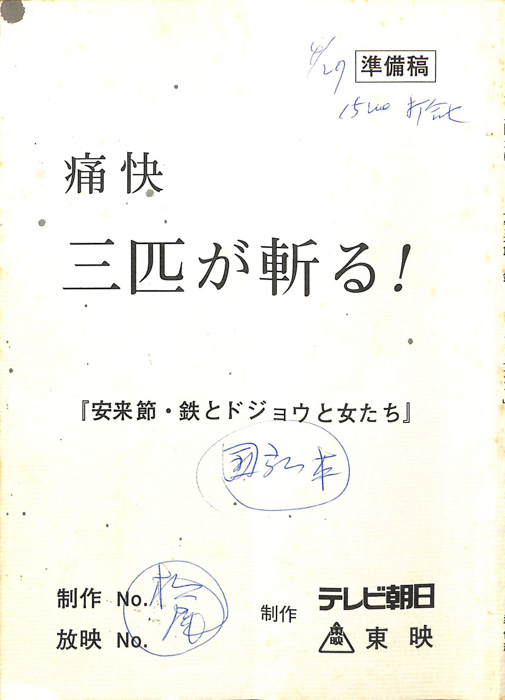 4/27 準備稿
15:00 打合せ
痛快
三匹が斬る!
『安来節・鉄とドジョウと女たち』
制作 No.
放映 No.
松尾
制作 テレビ朝日
東映 東映